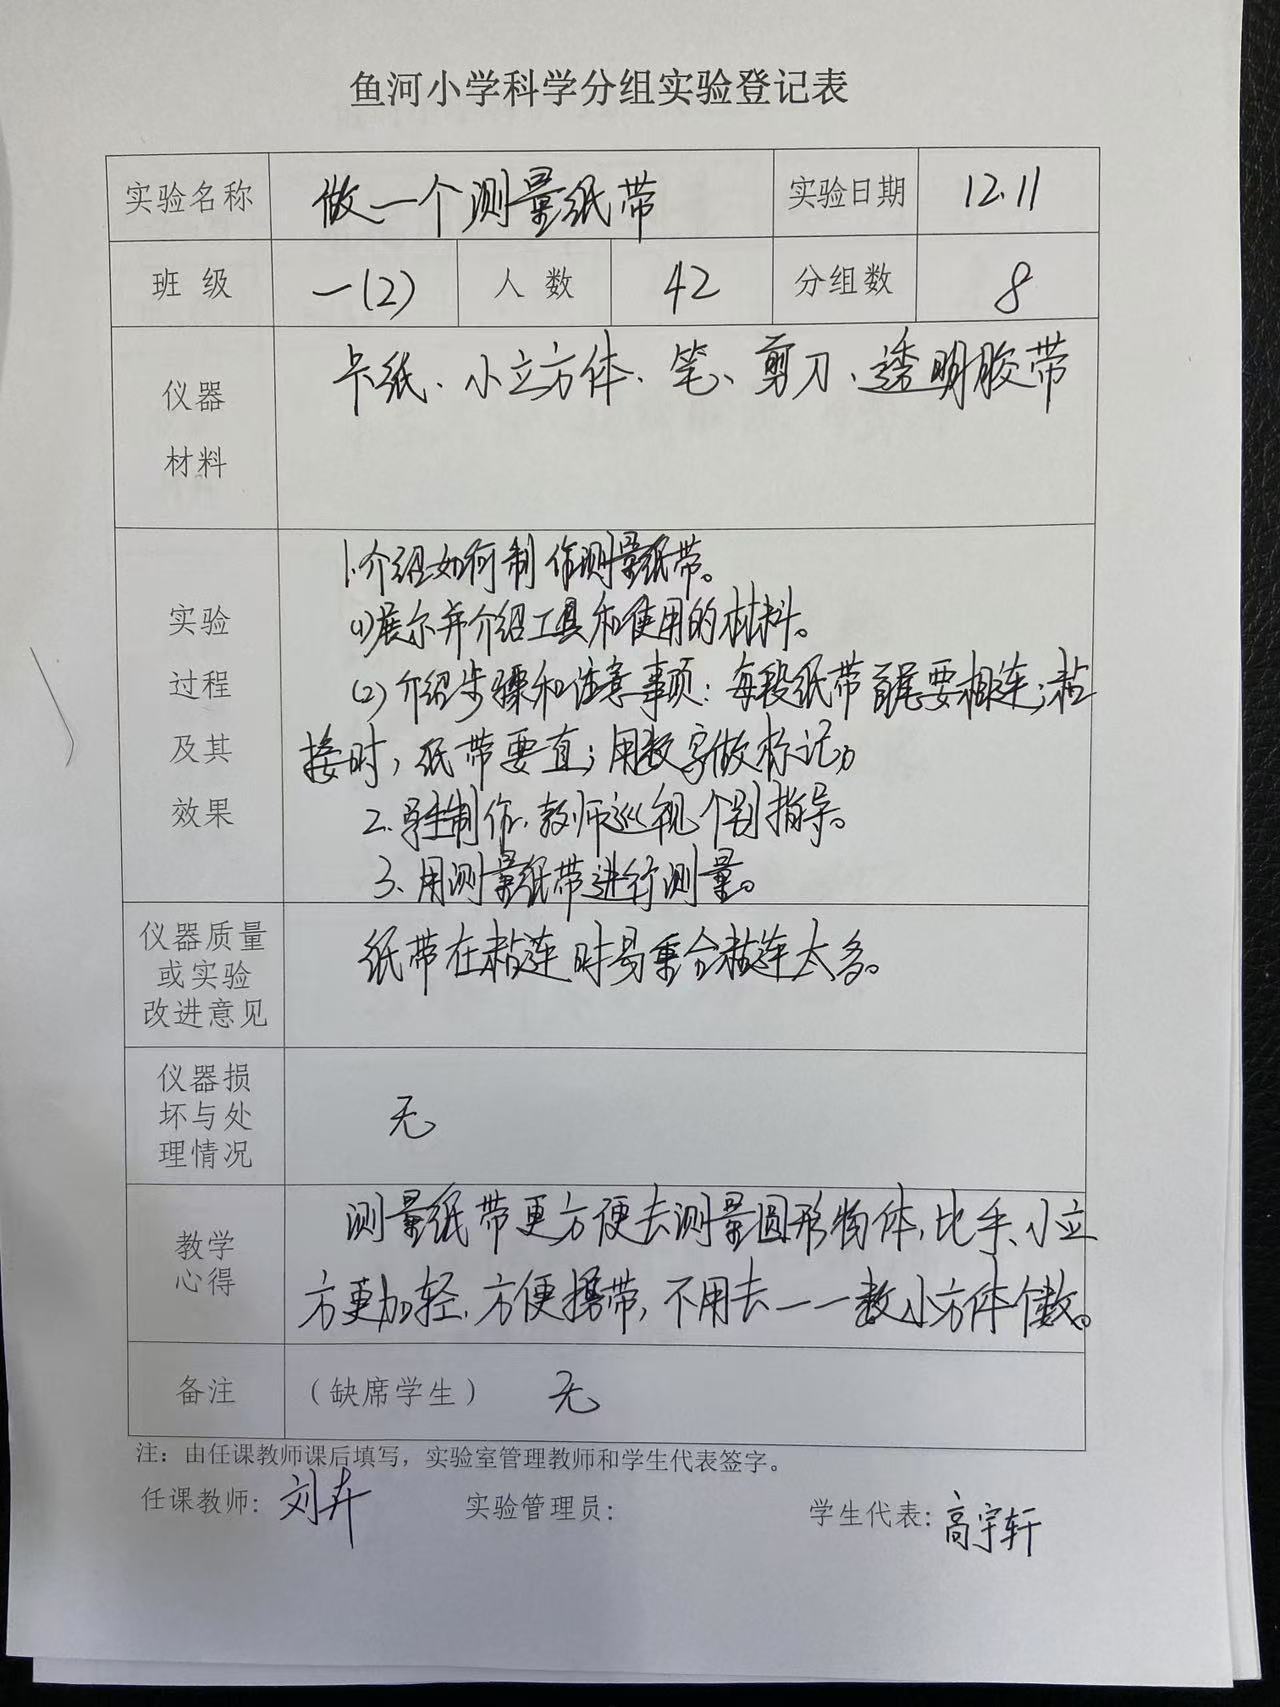 鱼河小学科学分组实验登记表
实验名称 做一个测量纸带 实验日期 12.11
班 级 一(2) 人 数 42 分组数 8
仪器
材料
卡纸、小立方体、笔、剪刀、透明胶带
实验
过程
及其
效果
1.介绍如何制作测量纸带。
(1)展示并介绍工具和使用的材料。
(2)介绍步骤和注意事项：每段纸带首尾要相连；粘
接时，纸带要直；用数字做标记。
2.学生制作.教师巡视个别指导。
3.用测量纸带进行测量。
仪器质量
或实验
改进意见
纸带在粘连时易重合粘连太多。
仪器损
坏与处
理情况
无
教学
心得
测量纸带更方便去测量圆形物体,比手、小立
方更加轻、方便携带,不用去一一数小方体个数。
备注 （缺席学生） 无
注：由任课教师课后填写，实验室管理教师和学生代表签字。
任课教师: 刘卉 实验管理员: 学生代表: 高宇轩